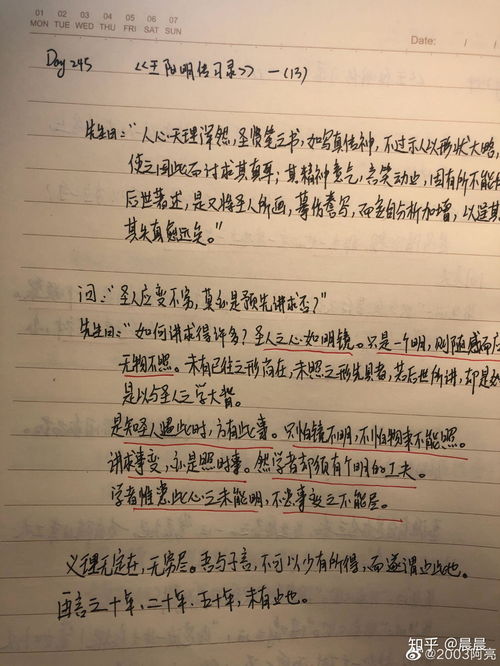 01 02 03 04 05 06 07
MON TUE WED THU FRI SAT SUN
Date: / /
Day 245 《王阳明传习录》一(13)
先生曰:“人心天理浑然,圣贤笔之书,如写真传神,不过示人以形状大略,
使之因此而讨求其真耳;其精神意气,言笑动止,固有所不能
后世著述,是又将圣人所画,摹仿誊写,而妄自分析加增,以逞其
其失真愈远矣。”
问:“圣人应变不穷,莫亦是预先讲求否?”
先生曰:“如何讲求得许多?圣人之心如明镜。只是一个明,则随感而应
无物不照。未有已往之形尚在,未照之形先具者,若后世所讲,却是如
是以与圣人之学大背。
是知圣人遇此时,方有此事。只怕镜不明,不怕物来不能照。
讲求事变,亦是照时事。然学者却须有个明的工夫。
学者惟患此心之未能明,不患事变之不能尽。
义理无定在,无穷尽。吾与子言,不可以少有所得,而遂谓止此也。
再言之十年、二十年、五十年,未有止也。
知乎 @晨晨
@2003阿亮